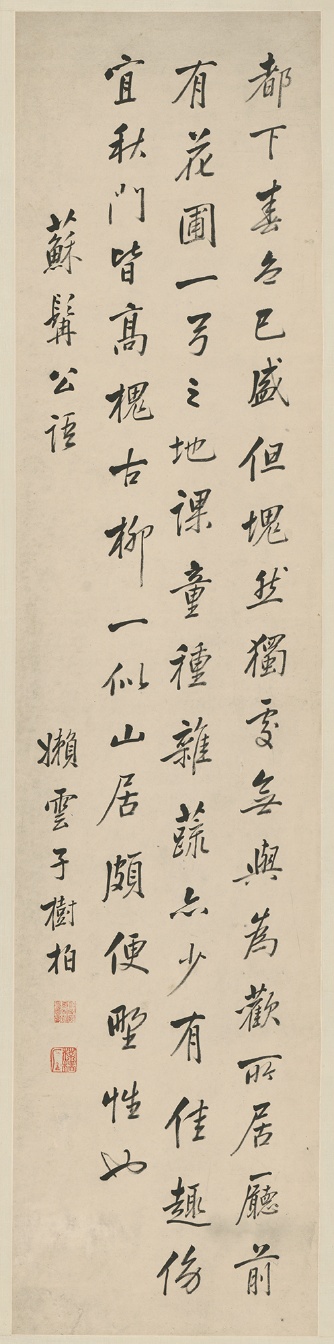 都下春色已盛但塊然獨處無與為歡所居廳前
有花圃一弓之地課童種雜蔬亦少有佳趣傍
宜秋門皆高槐古柳一似山居頗便野性也
蘇髯公語
嬾雲子樹柏